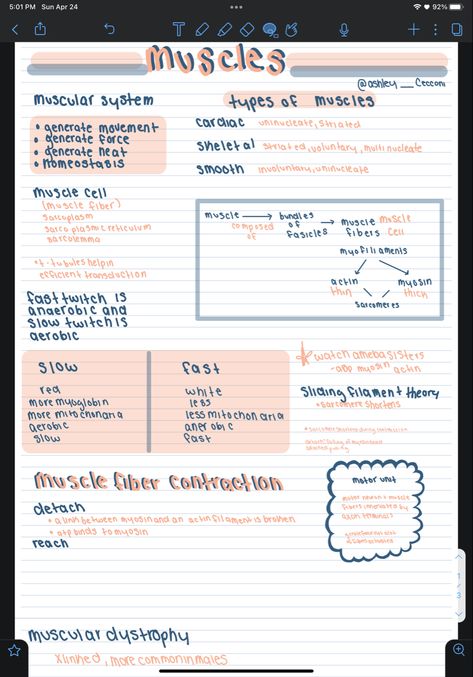 5:01 PM Sun Apr 24
92%
muscles
@ashley__cecconi
muscular system
• generate movement
• generate force
• generate heat
• homeostasis
types of muscles
cardiac uninucleate, striated
skeletal striated, voluntary, multinucleate
smooth involuntary, uninucleate
muscle cell
(muscle fiber)
sarcoplasm
sarcoplasmic reticulum
sarcolemma
*t-tubules help in
efficient transduction
muscle composed of bundles of fasicles muscle fibers muscle cell
myofilaments
actin thin myosin thick
sarcomeres
fast twitch is
anaerobic and
slow twitch is
aerobic
slow fast
red white
more myoglobin less
more mitochonaria less mitochonaria
aerobic anerobic
slow fast
watch amebasisters
- ADD myosin actin
sliding filament theory
*sarcomere shortens
muscle fiber contraction
detach
* a link between myosin and an actin filament is broken
* atp binds to myosin
reach
motor unit
motor neuron & muscle
fibers innervated by
axon terminals
muscular dystrophy
x linked, more common in males
1
3